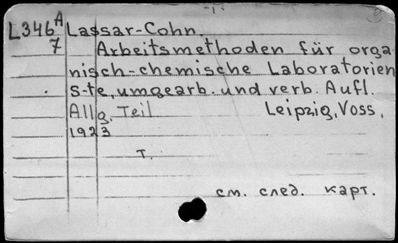 - 1 -
L346 A Lassar-Cohn.
7 Arbeitsmethoden für orga-
nisch-chemische Laboratorien
5-te, umgearb. und verb. Aufl.
Allg. Teil Leipzig, Voss,
1923
T.
см. след. карт.